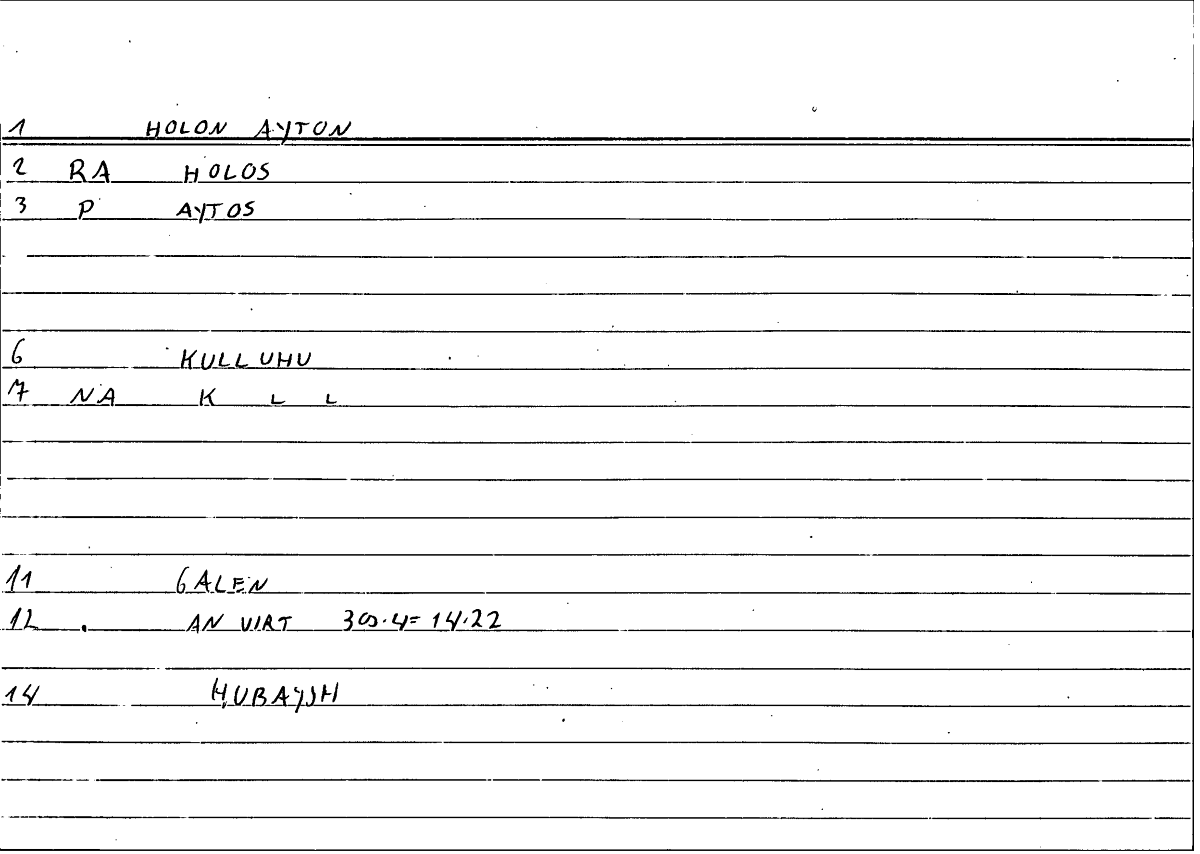 1 HOLON AYTON
2 RA HOLOS
3 P AYTOS
6 KULLUHU
7 NA K L L
11 GALEN
12 . AN VIRT 4= 14.22
14 ḤUBAYSH